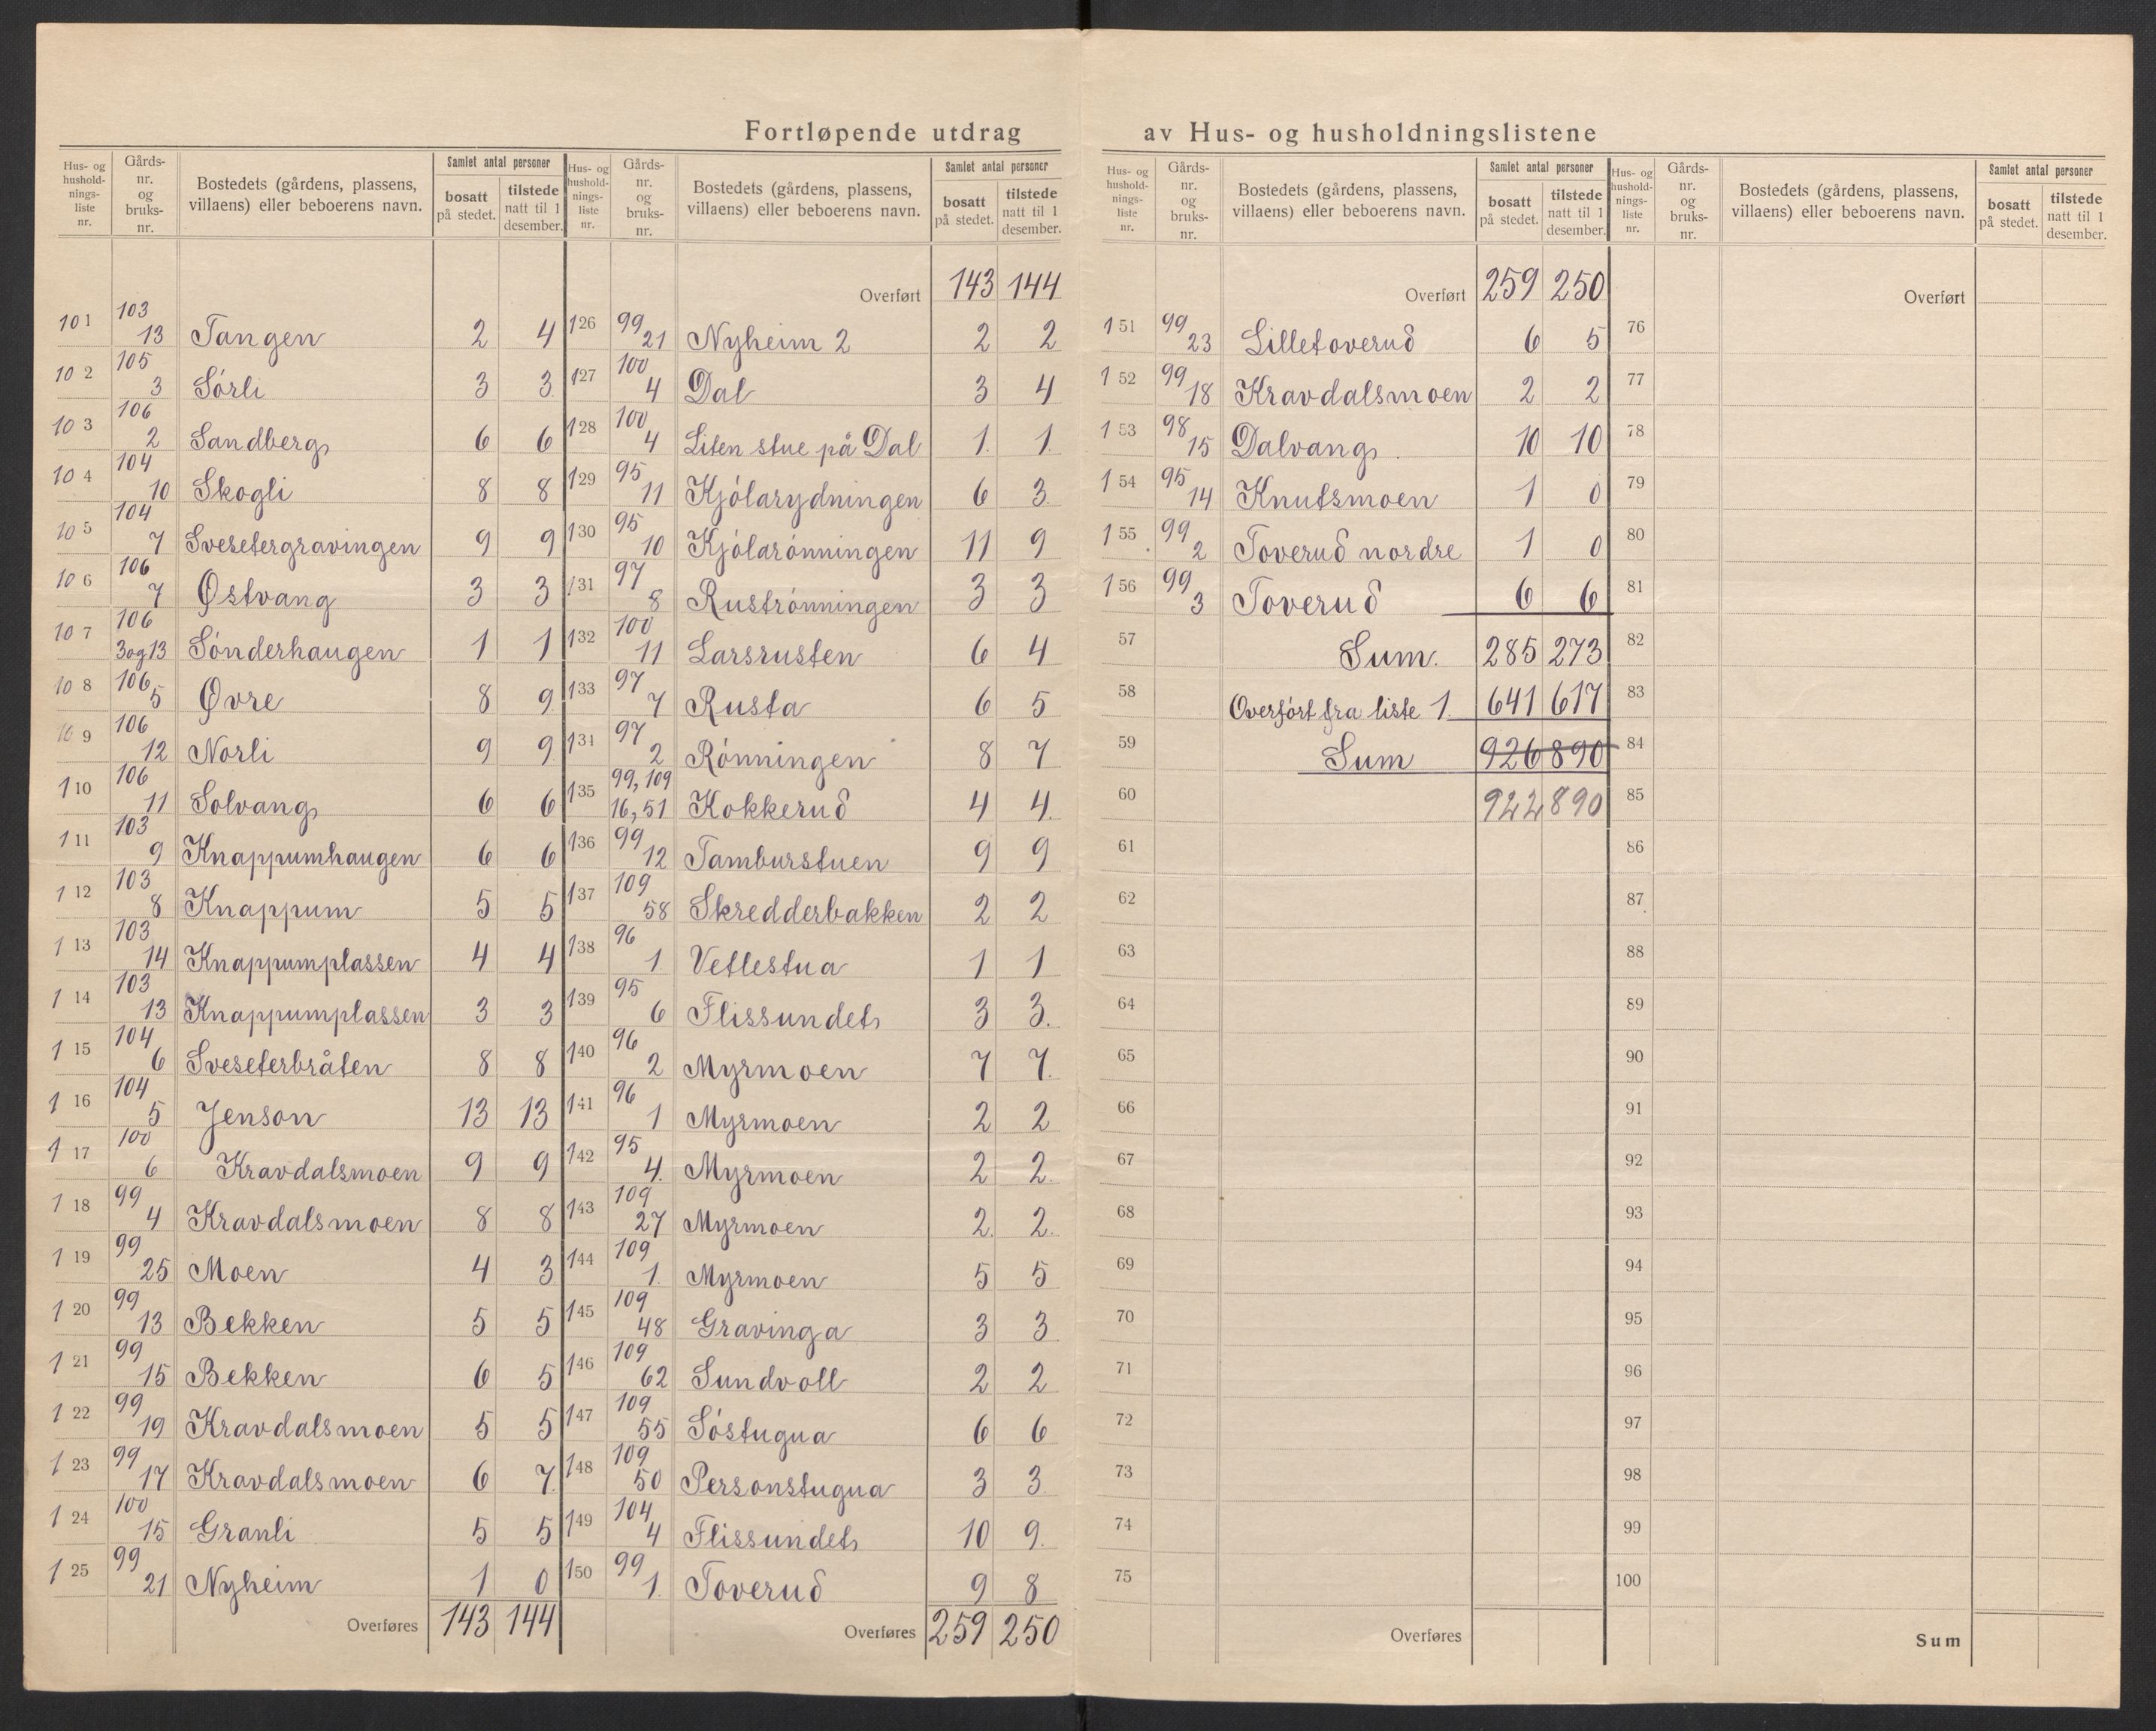 Fortløpende utdrag av Hus- og husholdningslistene
Hus- og hushold-nings-liste nr. | Gårds-nr. og bruks-nr. | Bostedets (gårdens, plassens, villaens) eller beboerens navn. | Samlet antal personer bosatt på stedet. | tilstede natt til 1 desember.
101 103 13 Tangen 2 4
102 105 3 Sórli 3 3
103 106 2 Sandberg 6 6
104 104 10 Skogli 8 8
105 104 7 Svesetergravingen 9 9
106 106 7 Østvang 3 3
107 106 3og13 Sónderhaugen 1 1
108 106 5 Øvre 8 9
109 106 12 Norli 9 9
110 106 11 Solvang 6 6
111 103 9 Knappumhaugen 6 6
112 103 8 Knappum 5 5
113 103 14 Knappumplassen 4 4
114 103 13 Knappumplassen 3 3
115 104 6 Sveseterbråten 8 8
116 104 5 Jenson 13 13
117 100 6 Kravdalsmoen 9 9
118 99 4 Kravdalsmoen 8 8
119 99 25 Moen 4 3
120 99 13 Bekken 5 5
121 99 15 Bekken 6 5
122 99 19 Kravdalsmoen 5 5
123 99 17 Kravdalsmoen 6 7
124 100 15 Granli 5 5
125 99 21 Nyheim 1 0
Overføres 143 144
Hus- og hushold-nings-liste nr. | Gårds-nr. og bruks-nr. | Bostedets (gårdens, plassens, villaens) eller beboerens navn. | Samlet antal personer bosatt på stedet. | tilstede natt til 1 desember.
Overført 143 144
126 99 21 Nyheim 2 2 2
127 100 4 Dal 3 4
128 100 4 Liten stue på Dal 1 1
129 95 11 Kjólarydningen 6 3
130 95 10 Kjólarónningen 11 9
131 97 8 Rustrónningen 3 3
132 100 11 Larsrusten 6 4
133 97 7 Rusta 6 5
134 97 2 Rónningen 8 7
135 99, 109 16, 51 Kokkerud 4 4
136 99 12 Tamburstuen 9 9
137 109 58 Skredderbakken 2 2
138 96 1 Vetlestua 1 1
139 95 6 Flissundet 3 3
140 96 2 Myrmoen 7 7
141 96 1 Myrmoen 2 2
142 95 4 Myrmoen 2 2
143 109 27 Myrmoen 2 2
144 109 1 Myrmoen 5 5
145 109 48 Gravinga 3 3
146 109 62 Sundvoll 2 2
147 109 55 Sóstugua 6 6
148 109 50 Personstugua 3 3
149 104 4 Flissundet 10 9
150 99 1 Toverud 9 8
Overføres 259 250
Hus- og hushold-nings-liste nr. | Gårds-nr. og bruks-nr. | Bostedets (gårdens, plassens, villaens) eller beboerens navn. | Samlet antal personer bosatt på stedet. | tilstede natt til 1 desember.
Overført 259 250
151 99 23 Lilletoverud 6 5
152 99 18 Kravdalsmoen 2 2
153 98 15 Dalvang 10 10
154 95 14 Knutsmoen 1 0
155 99 2 Toverud nordre 1 0
156 99 3 Toverud 6 6
57 Sum. 285 273
58 Overfórt fra liste 1. 641 617
59 Sum 926 890
60 922 890
61
62
63
64
65
66
67
68
69
70
71
72
73
74
75
Overføres
Hus- og hushold-nings-liste nr. | Gårds-nr. og bruks-nr. | Bostedets (gårdens, plassens, villaens) eller beboerens navn. | Samlet antal personer bosatt på stedet. | tilstede natt til 1 desember.
Overført
76
77
78
79
80
81
82
83
84
85
86
87
88
89
90
91
92
93
94
95
96
97
98
99
100
Sum